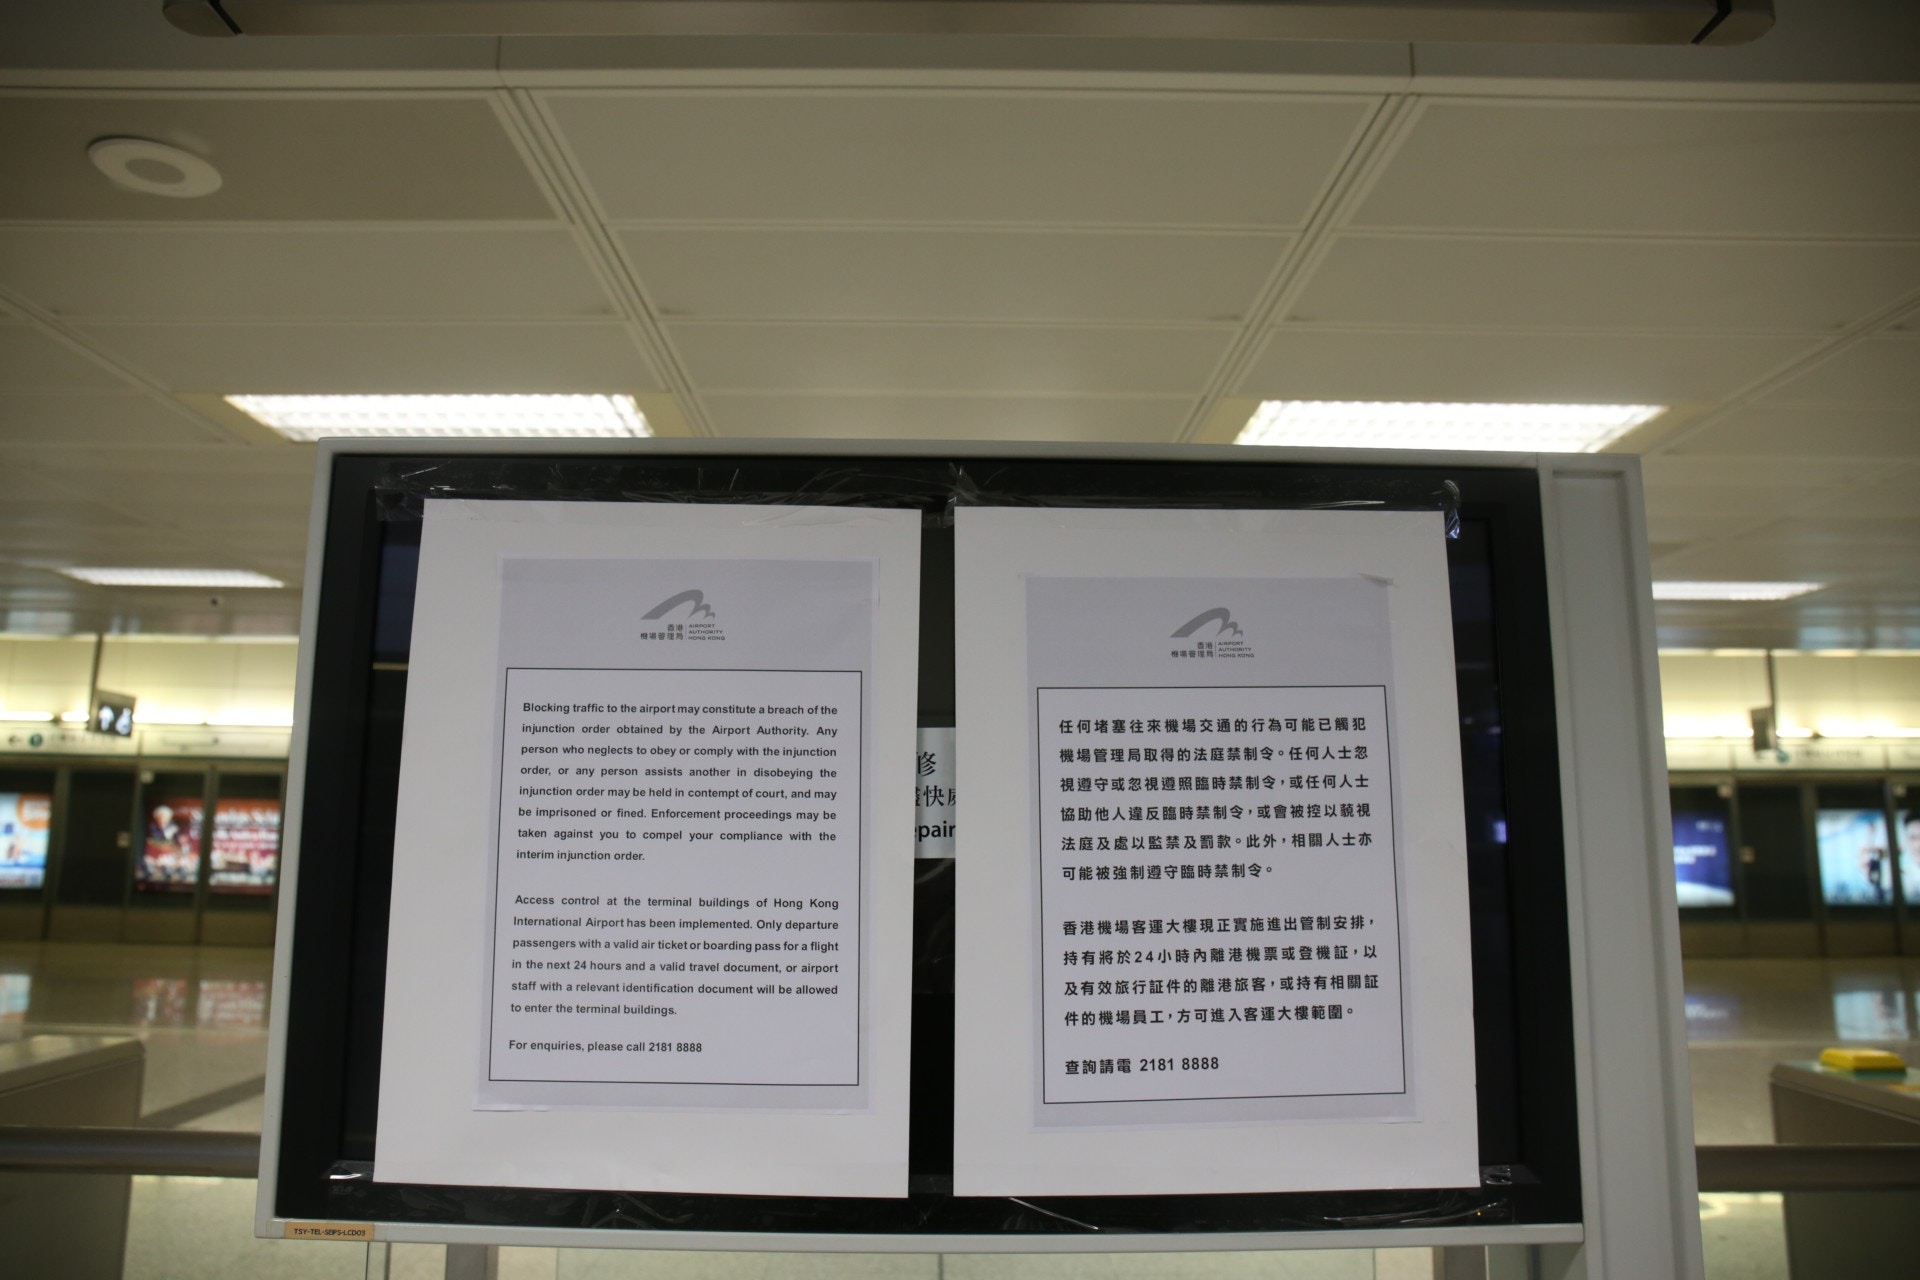 香港
機場管理局
AIRPORT
AUTHORITY
HONG KONG
Blocking traffic to the airport may constitute a breach of the
injunction order obtained by the Airport Authority. Any
person who neglects to obey or comply with the injunction
order, or any person assists another in disobeying the
injunction order may be held in contempt of court, and may
be imprisoned or fined. Enforcement proceedings may be
taken against you to compel your compliance with the
interim injunction order.
Access control at the terminal buildings of Hong Kong
International Airport has been implemented. Only departure
passengers with a valid air ticket or boarding pass for a flight
in the next 24 hours and a valid travel document, or airport
staff with a relevant identification document will be allowed
to enter the terminal buildings.
For enquiries, please call 2181 8888
修
快
epair
香港
機場管理局
AIRPORT
AUTHORITY
HONG KONG
任何堵塞往來機場交通的行為可能已觸犯
機場管理局取得的法庭禁制令。任何人士忽
視遵守或忽視遵照臨時禁制令，或任何人士
協助他人違反臨時禁制令，或會被控以藐視
法庭及處以監禁及罰款。此外，相關人士亦
可能被強制遵守臨時禁制令。
香港機場客運大樓現正實施進出管制安排，
持有將於24小時內離港機票或登機証，以
及有效旅行証件的離港旅客，或持有相關証
件的機場員工，方可進入客運大樓範圍。
查詢請電 2181 8888
TSY-TEL-SEIPS-LCD03